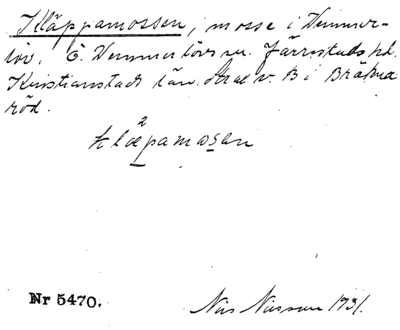 Kläppamossen, mosse i Vemmer-
löv, Ö. Vemmerlövs sn. Järrestads hd.
Kristianstads län. Strax v. B i Bräkna
röd.
2
klæpamosen
Nr 5470.
Nils Nilsson 1931.